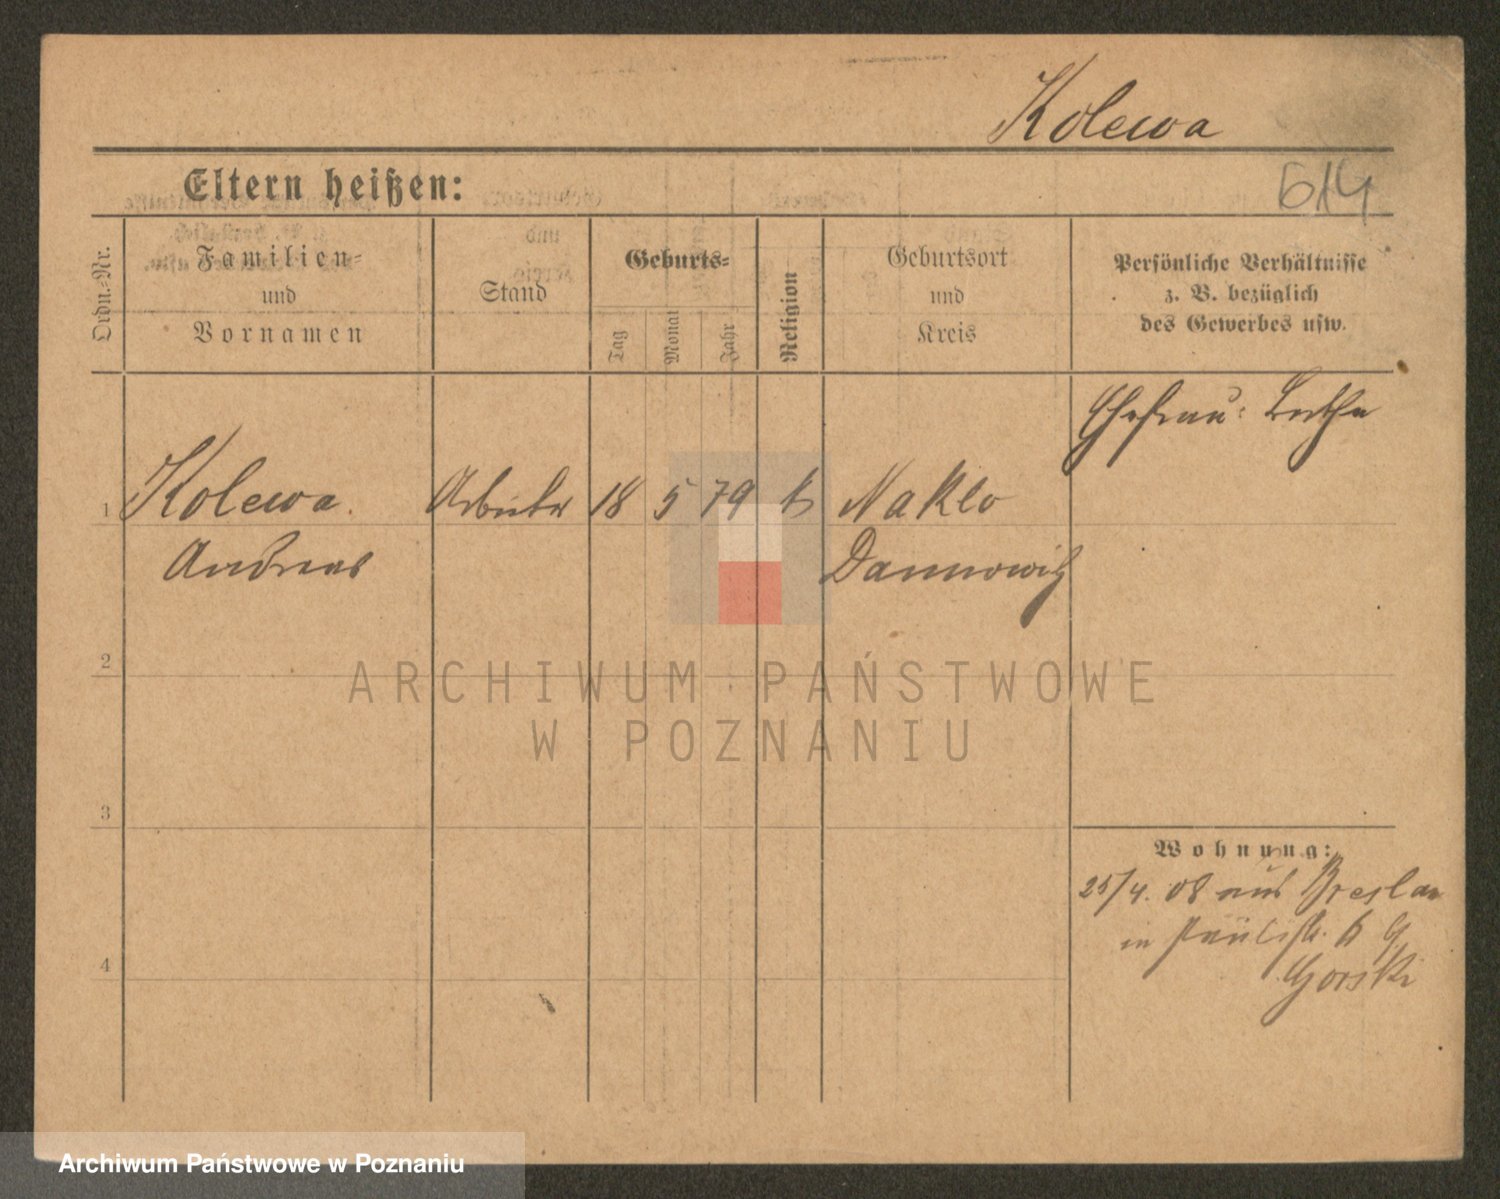 Kolewa
Eltern heißen:
614
Ordn.-Nr.
Familien-
und
Vornamen
Stand
Geburts-
Tag
Monat
Jahr
Religion
Geburtsort
und
Kreis
Persönliche Verhältnisse
z. B. bezüglich
des Gewerbes usw.
Ehefrau:
1 Kolewa Arbeiter 18 5 79 k Naklo
Andreas
2
ARCHIWUM PAŃSTWOWE
W POZNANIU
3
Wohnung:
25/4. 08 aus Breslau
in
4
Gorski
Archiwum Państwowe w Poznaniu